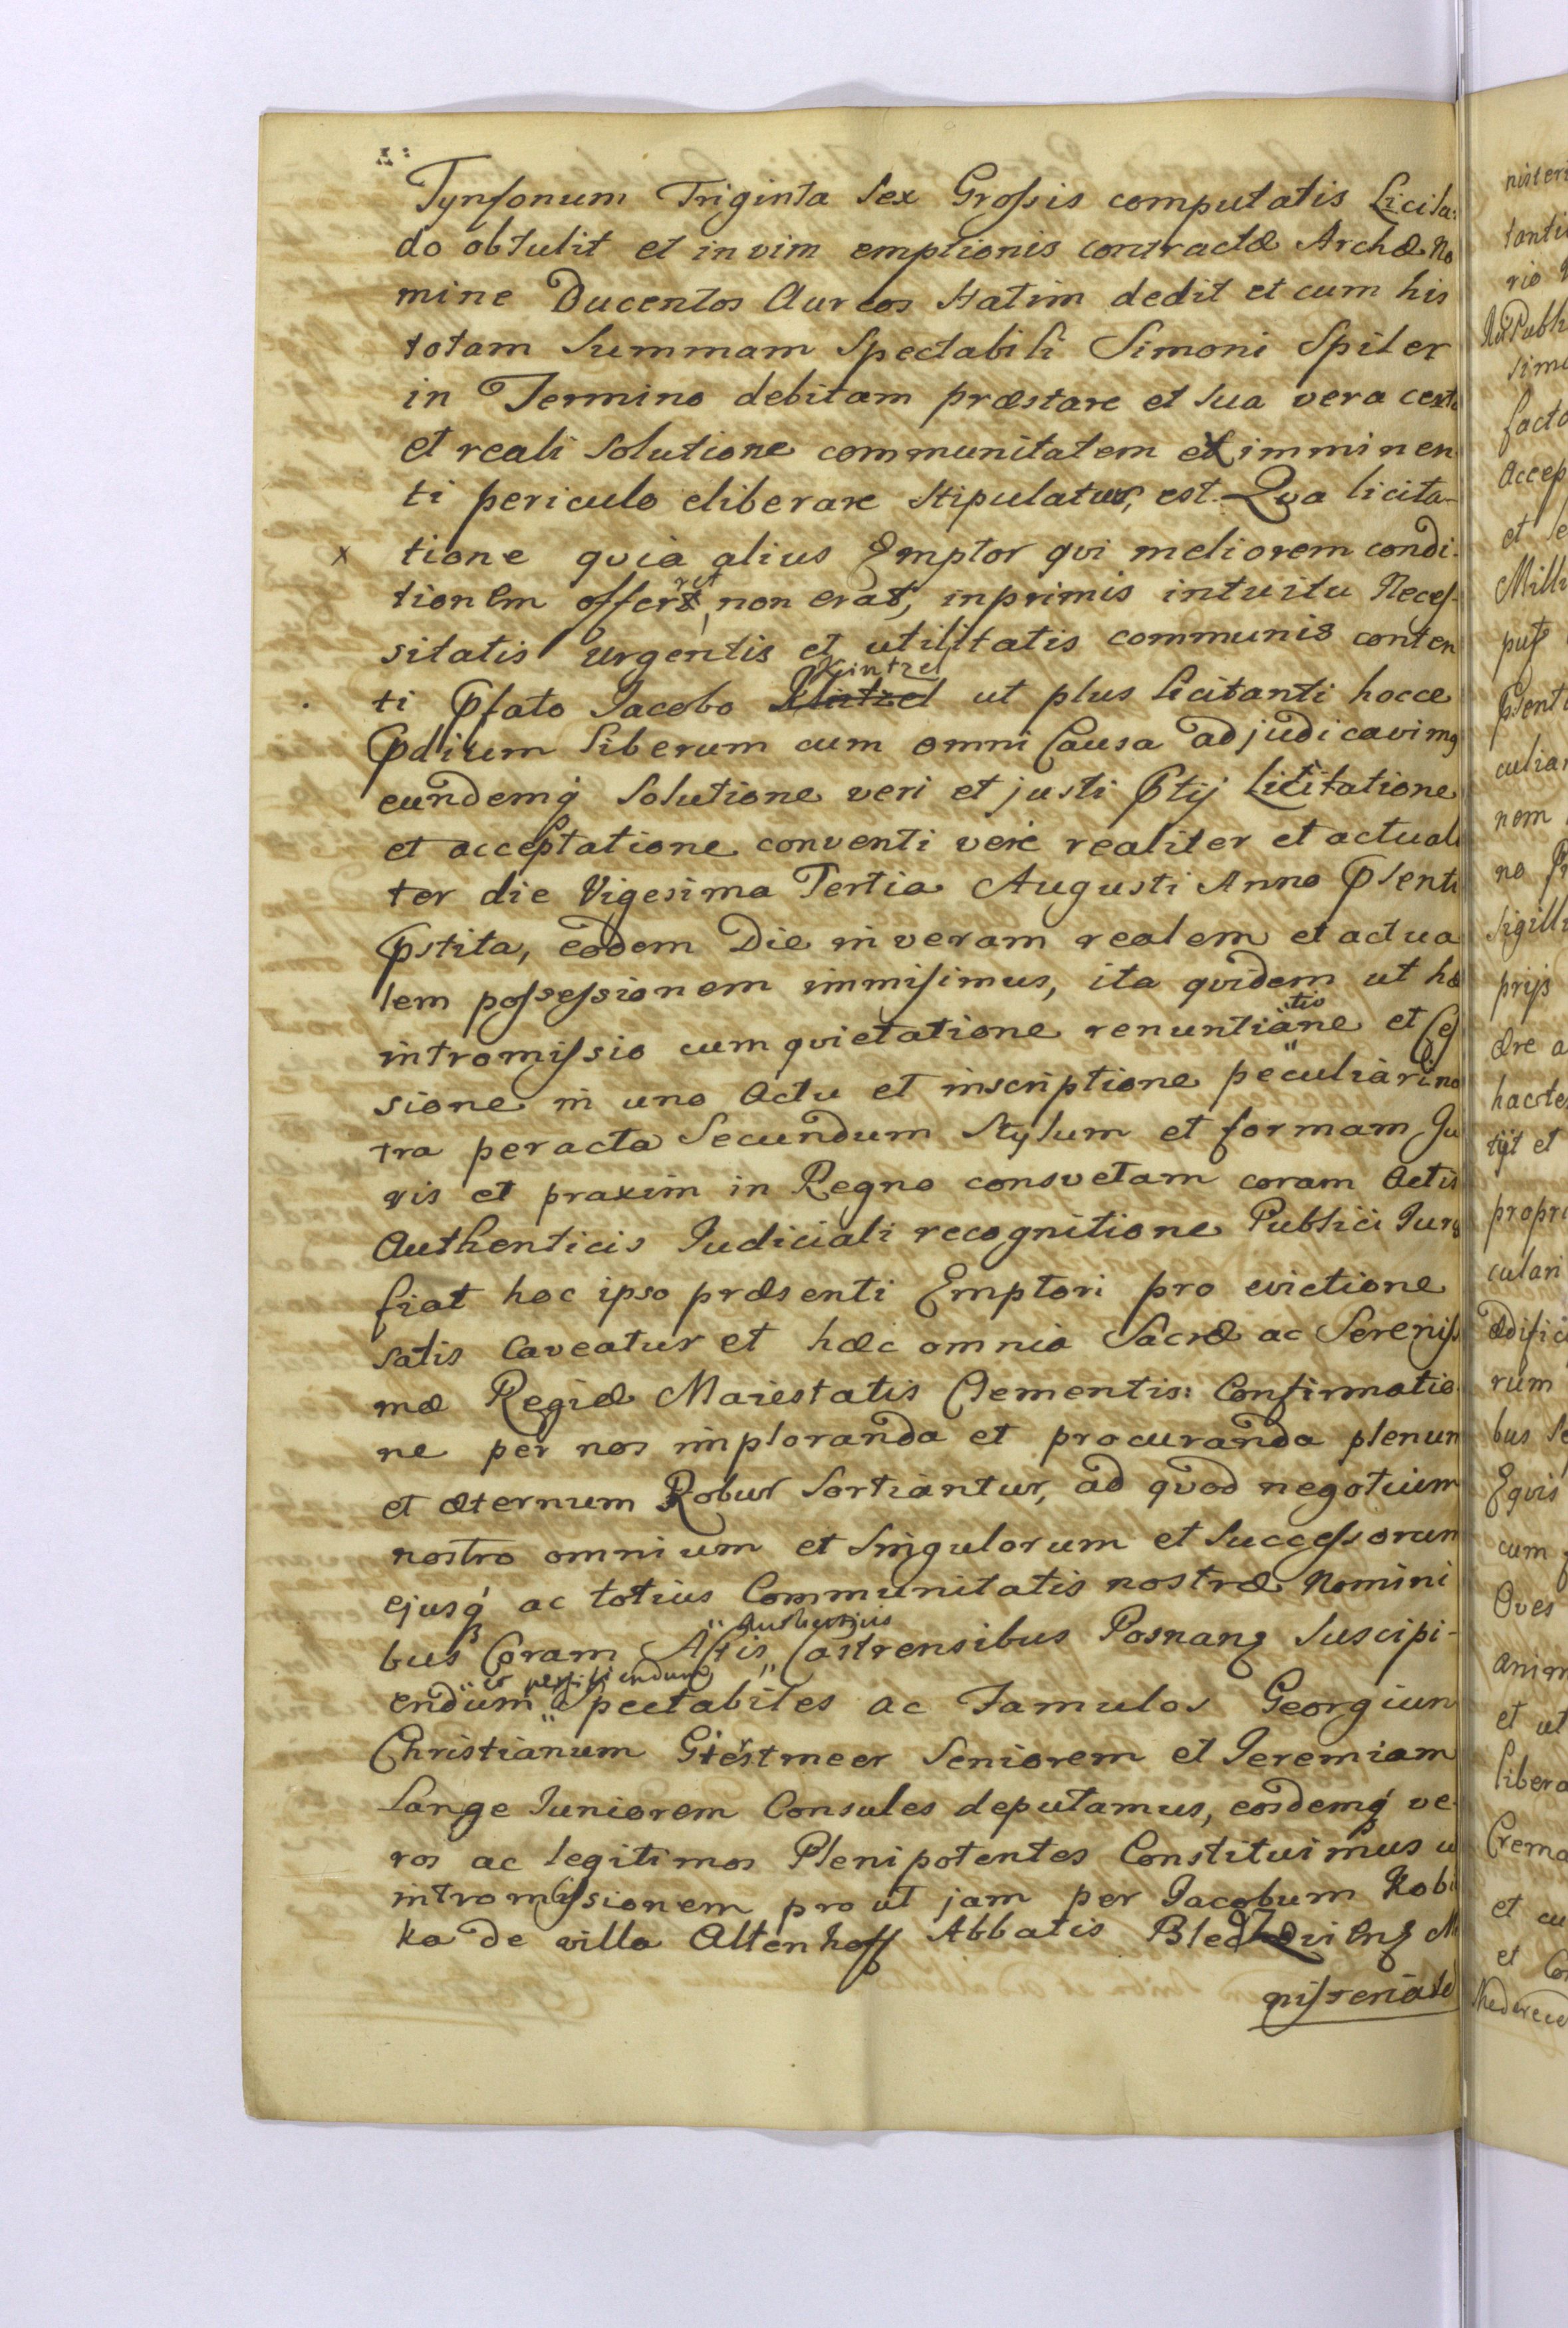 Tynsonum Triginta sex Grossis computatis Licita:
do obtulit et in vim emptionis contractæ Archæ No
mine Ducentos Aureos statim dedit et cum his
totam Summam Spectabili Simoni Spiler
in Termino debitam præstare et sua vera certa
et reali Solutione communitatem ex imminen
ti periculo eliberare stipulatus, est. Qva licita-
x tione qvia alius Emptor qvi meliorem condi-
tionem offerret, non erat, inprimis intuitu Neces-
sitatis Urgentis et utilitatis communis conten
Kintzel
ti Pfato Jacobo ut plus licitanti hocce
Pdium Liberum cum omni Causa adjudicavimq
eundemq́ Solutione veri et justi Ptij Licitatione
et acceptatione conventi vere realiter et actuali
ter die Vigesima Tertia Augusti Anno Psenti
Pstita, eodem Die in veram realem et actua
lem possessionem immisimus, ita qvidem ut hæ
intromissio cum qvietatione renuntiatione et Ces
sione in uno Actu et inscriptione peculiari no
tra peracta Secundum Stylum et formam Ju
ris et praxim in Regno consvetam coram Actis
Authenticis Judiciali recognitione Publici Juris
fiat hoc ipso præsenti Emptori pro evictione
satis Caveatur et hæc omnia Sacræ ac Sereniss
mæ Regiæ Maiestatis Clementis: Confirmatio
ne per nos imploranda et procuranda plenum
et æternum Robur Sortiantur, ad qvod negotium
nostro omnium et Singulorum et Successorum
ejusq́ ac totius Communitatis nostræ Nomini
bus Coram Actis Castrensibus Posnanz Suscipi-
et perficiendum
endum Spectabiles ac Famulos Georgium
Christianum Giestmeer Seniorem et Jeremiam
Lange Juniorem Consules deputamus, eosdemq́ ve-
ros ac legitimos Plenipotentes Constituimus u
intromissionem pro ut jam per Jacobum Kobi
ka de villa Altenhoff Abbatis M
nisteria

nister
tanti
rio
Publi
sim
facto
accep
et
Mill
Psent
culiar
nem
no
Sigill
prijs
ære a
hacte
tijt et
propri
culari
ædifici
rum
bus Se
Eqvis
cum
Oves
anim
et ut
libera
Crema
et cu
et Co